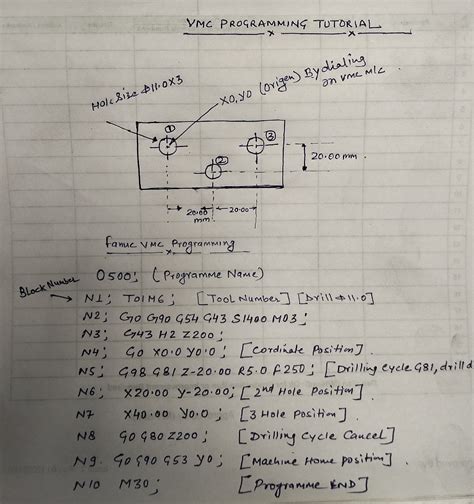 VMC PROGRAMMING TUTORIAL
Hole Size φ11.0X3
X0,Y0 (Origen) By dialing
on VMC M/C
①
②
③
20.00 mm
20.00
mm
20.00
fanuc VMC Programming
Block Number
O500; (Programme Name)
N1; T01M6; [Tool Number] [Drill φ11.0]
N2; G0 G90 G54 G43 S1400 M03;
N3; G43 H2 Z200;
N4; G0 X0.0 Y0.0; [Cordinate Position]
N5; G98 G81 Z-20.00 R5.0 F250; [Drilling Cycle G81, drill d
N6; X20.00 Y-20.00; [2nd Hole Position]
N7 X40.00 Y0.0; [3 Hole Position]
N8 G0 G80 Z200; [Drilling Cycle Cancel]
N9. G0 G90 G53 Y0; [Machine Home position]
N10 M30; [Programme END]